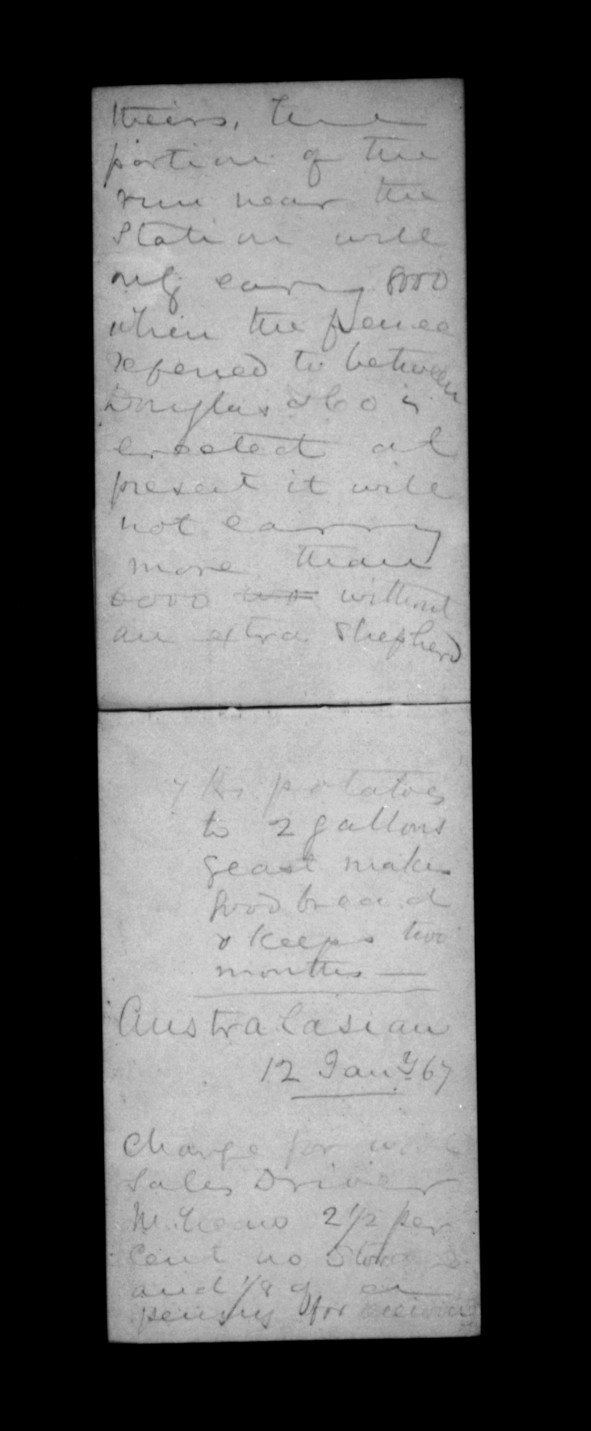 theirs, the
portion of the
run near the
Station will
only carry 8000
when the fence
referred to between
Douglas & Co is
erected at
present it will
not carry
more than
6000 without
an extra Shepherd
potatoes
to 2 gallons
yeast makes
good bread
& keeps two
months —
Australasian
12 Jany 67
Charge for
Sales Driver
2 1/2 per
Cent no
and 1/8 of
penny for